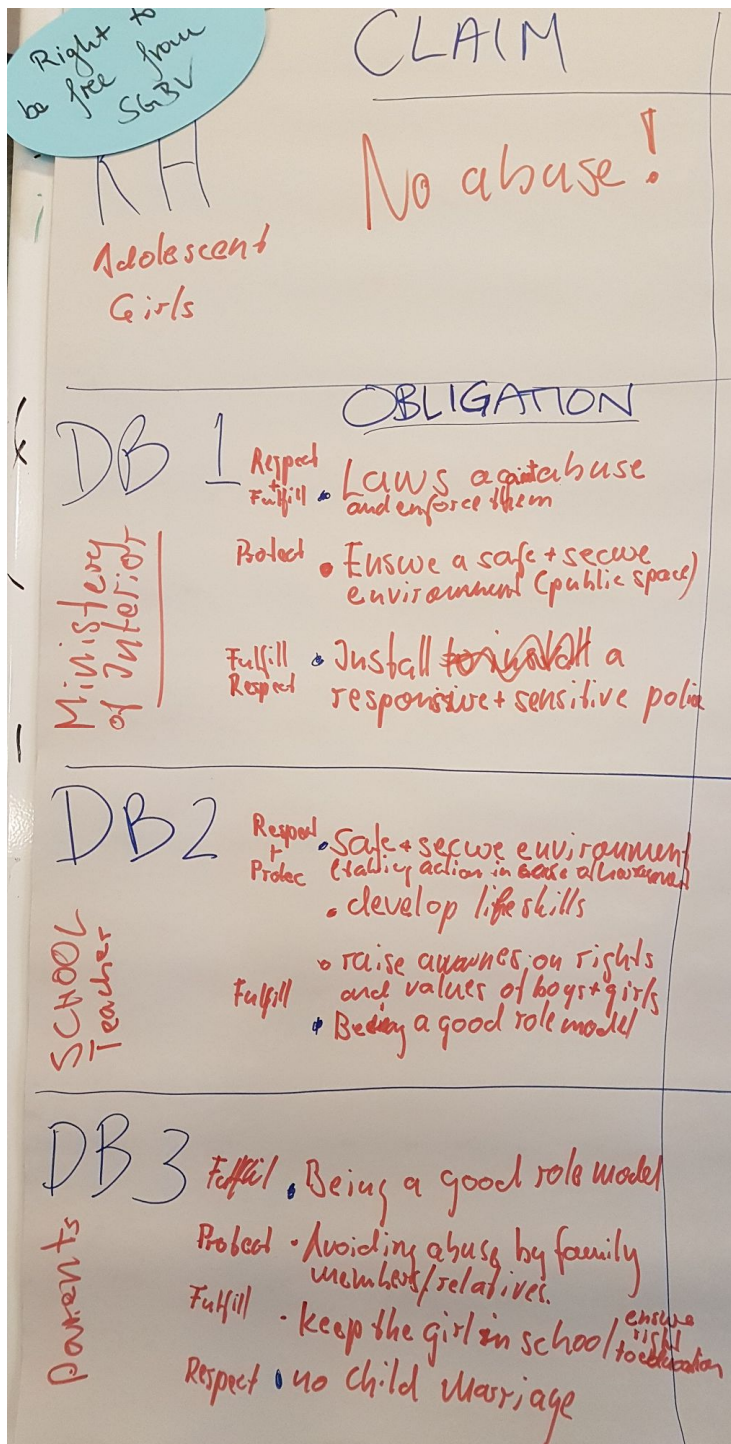 Right to
be free from
SGBV
CLAIM
RH
No abuse!
Adolescent
Girls
OBLIGATION
DB 1
Ministery
of Interior
Respect
+
Fulfill
• Laws against abuse
and enforce them
Protect
• Ensure a safe + secure
environment (public space)
Fulfill
Respect
• Install a
responsive + sensitive police
DB2
SCHOOL
Teacher
Respect
+
Protec
• Safe + secure environment
(taking action in case of harassment
• develop life skills
Fulfill
• raise awarnes on rights
and values of boys + girls
• Being a good role model
DB 3
Parents
Fulfil
• Being a good role model
Protect
• Avoiding abuse by family
members/relatives.
Fulfill
• keep the girl in school/ensure
right
to education
Respect
• no child marriage